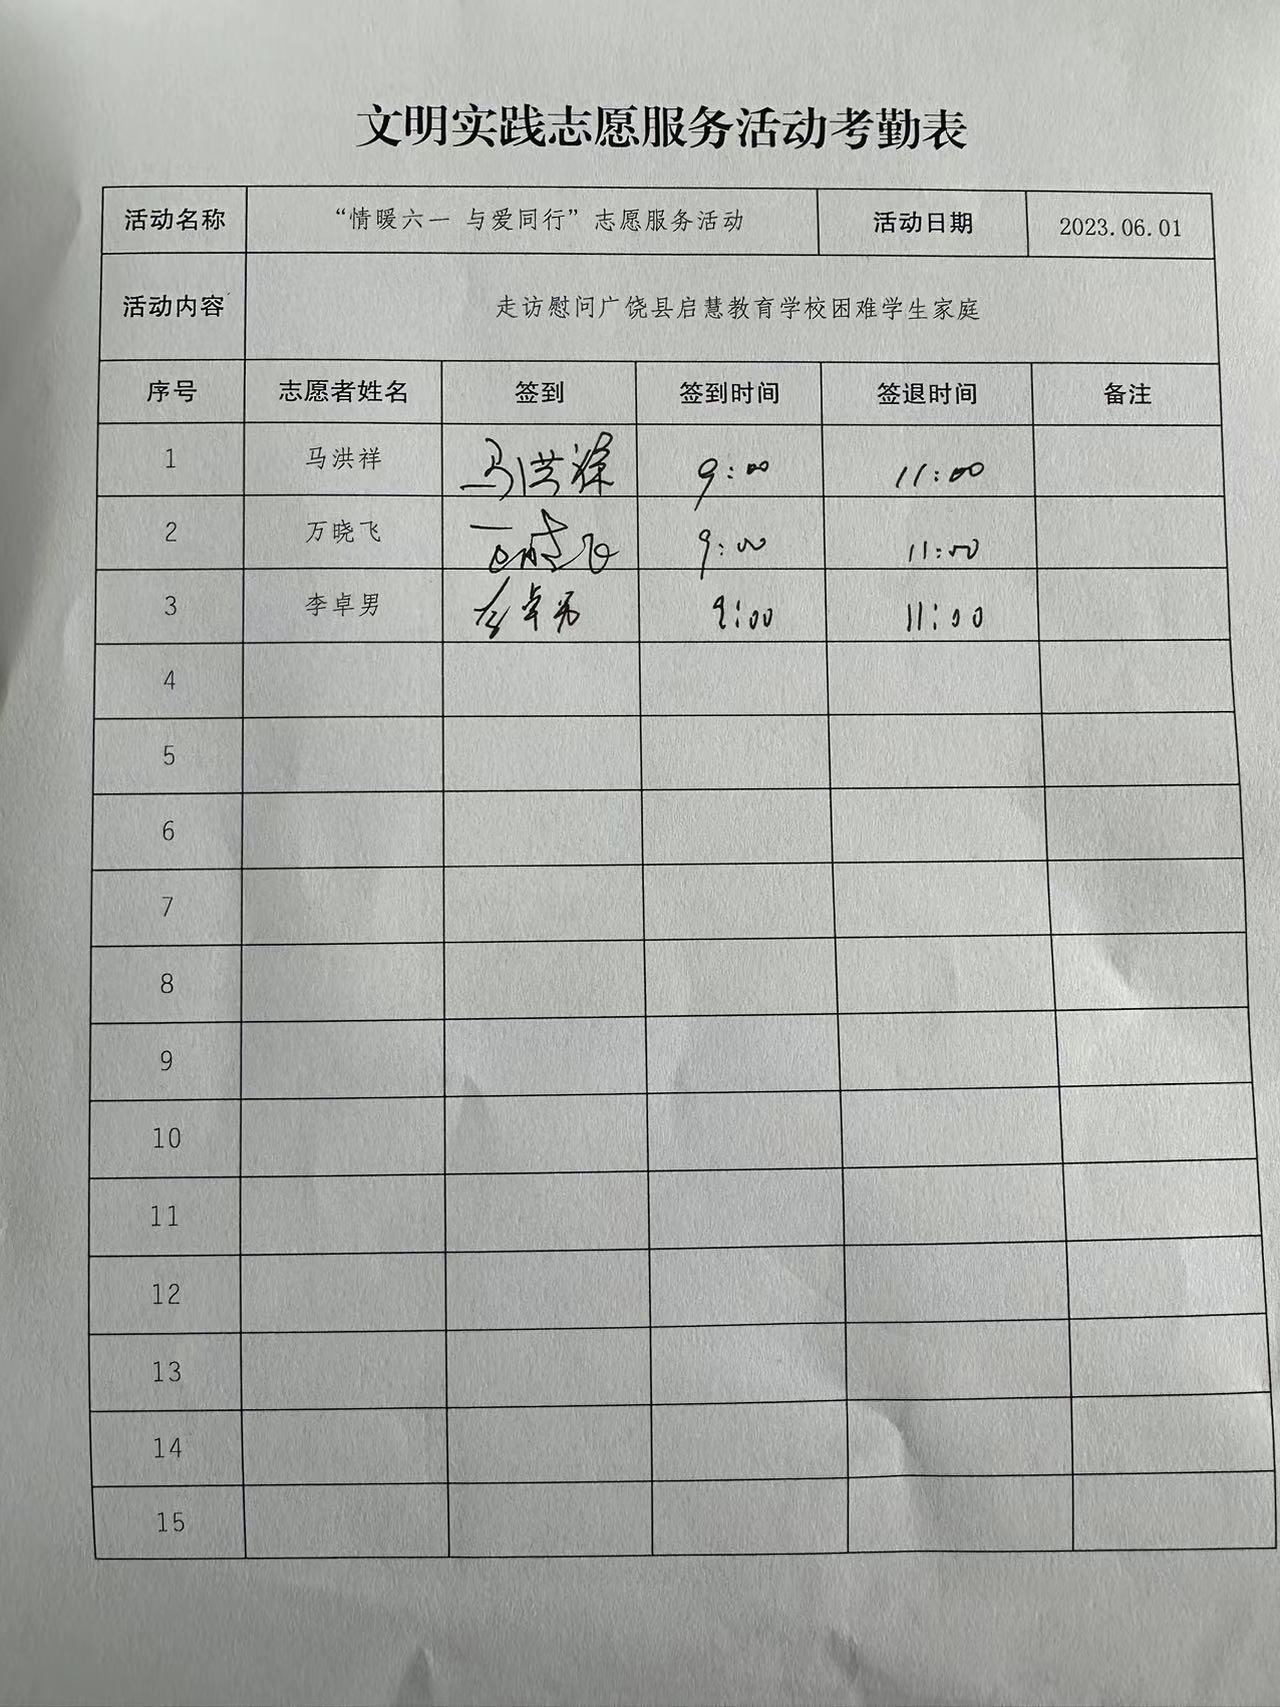 文明实践志愿服务活动考勤表
活动名称 “情暖六一 与爱同行”志愿服务活动 活动日期 2023.06.01
活动内容 走访慰问广饶县启慧教育学校困难学生家庭
序号 志愿者姓名 签到 签到时间 签退时间 备注
1 马洪祥 马洪祥 9:00 11:00
2 万晓飞 万晓飞 9:00 11:00
3 李卓男 李卓男 9:00 11:00
4
5
6
7
8
9
10
11
12
13
14
15